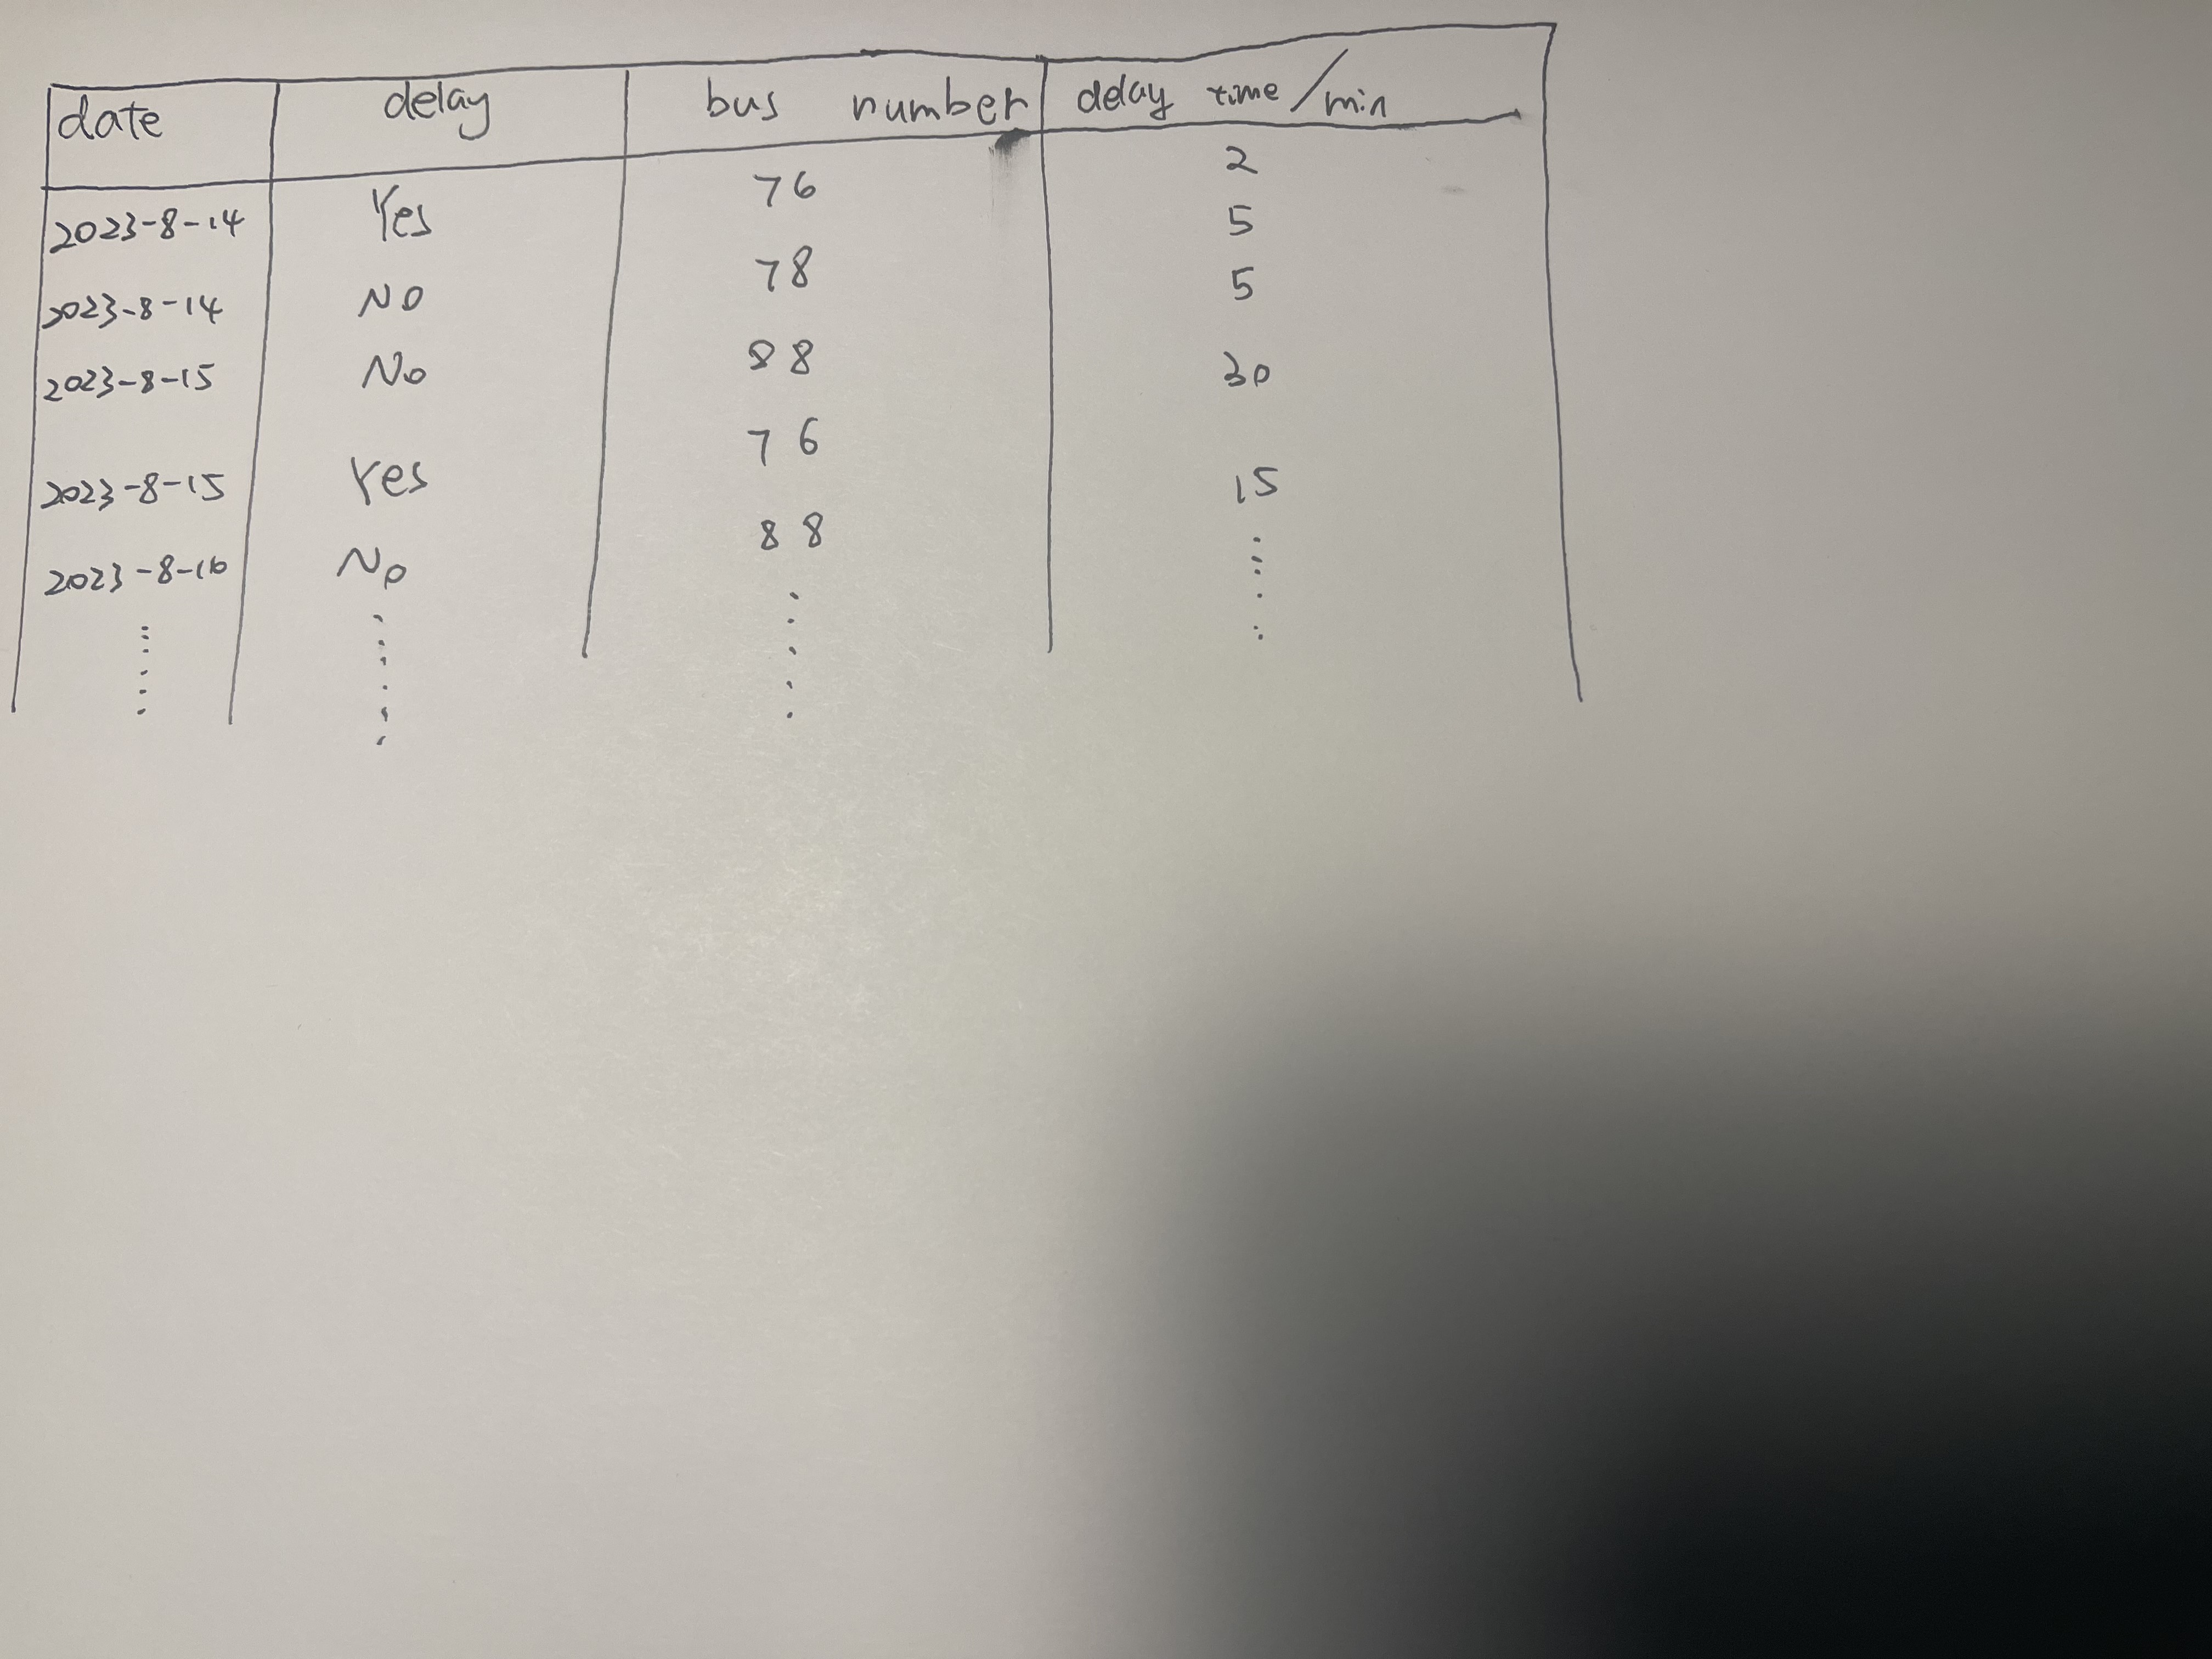 date delay bus number delay time/min
2023-8-14 Yes 76 2
2023-8-14 NO 78 5
2023-8-15 No 88 5
2023-8-15 Yes 76 30
2023-8-16 No 88 15